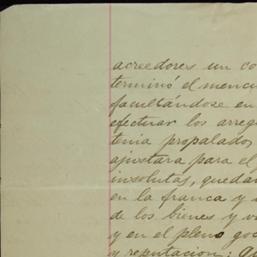 acreedores un co
terminó el mencu
facultándose en
efectuar los arreg
tenia propalados
ajustara para el
insolutas, quedan
en la franca y
de los bienes y v
y en el pleno goc
y reputacion: Qu